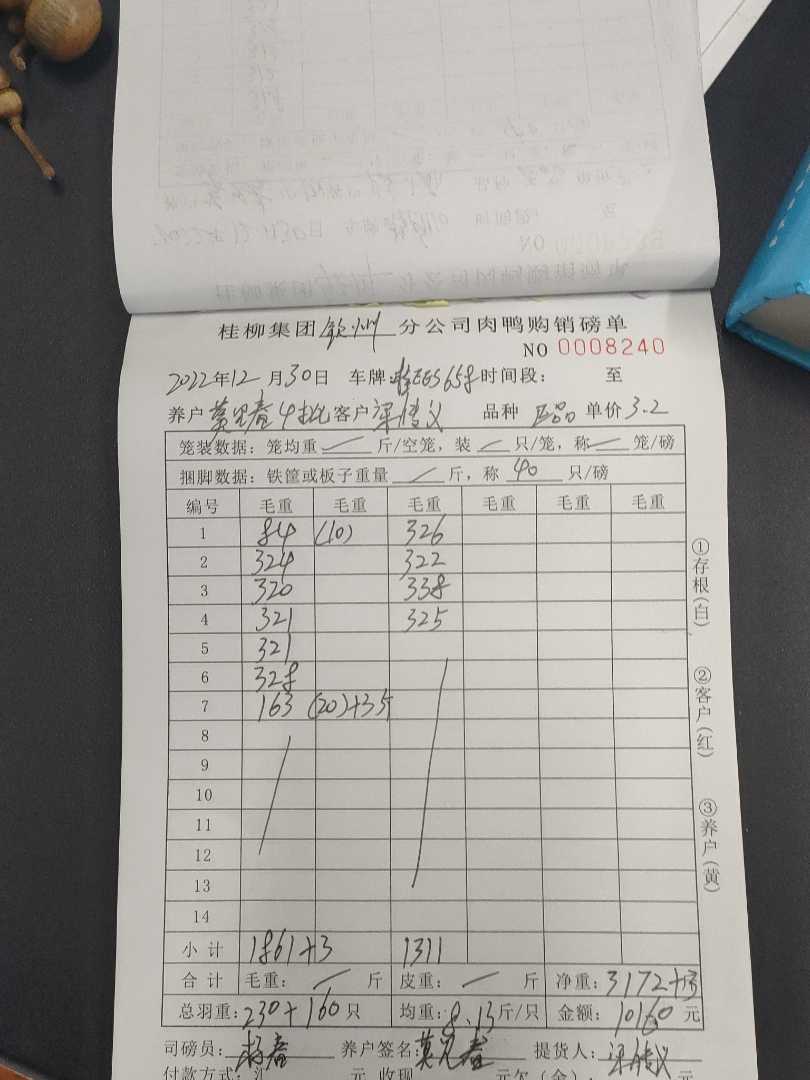 桂柳集团钦州分公司肉鸭购销磅单
NO 0008240
2022年12月30日 车牌: 时间段: 至
养户 春4批 客户梁 义 品种 正品 单价3.2
笼装数据: 笼均重 / 斤/空笼, 装 / 只/笼, 称 / 笼/磅
捆脚数据: 铁筐或板子重量 / 斤, 称 40 只/磅
编号 毛重 毛重 毛重 毛重 毛重 毛重
1 84 (10) 326
2 324 322
3 320 338
4 321 325
5 321
6 328
7 163 (20)+3斤
8
9
10
11
12
13
14
小计 1861+3 1311
合计 毛重: / 斤 皮重: / 斤 净重: 3172+3
总羽重: 230+160只 均重: 8.13斤/只 金额: 10160元
司磅员: 春 养户签名: 春 提货人: 梁 义
付款方式: 汇 元 收现 元欠(余): 元
①存根(白)
②客户(红)
③养户(黄)